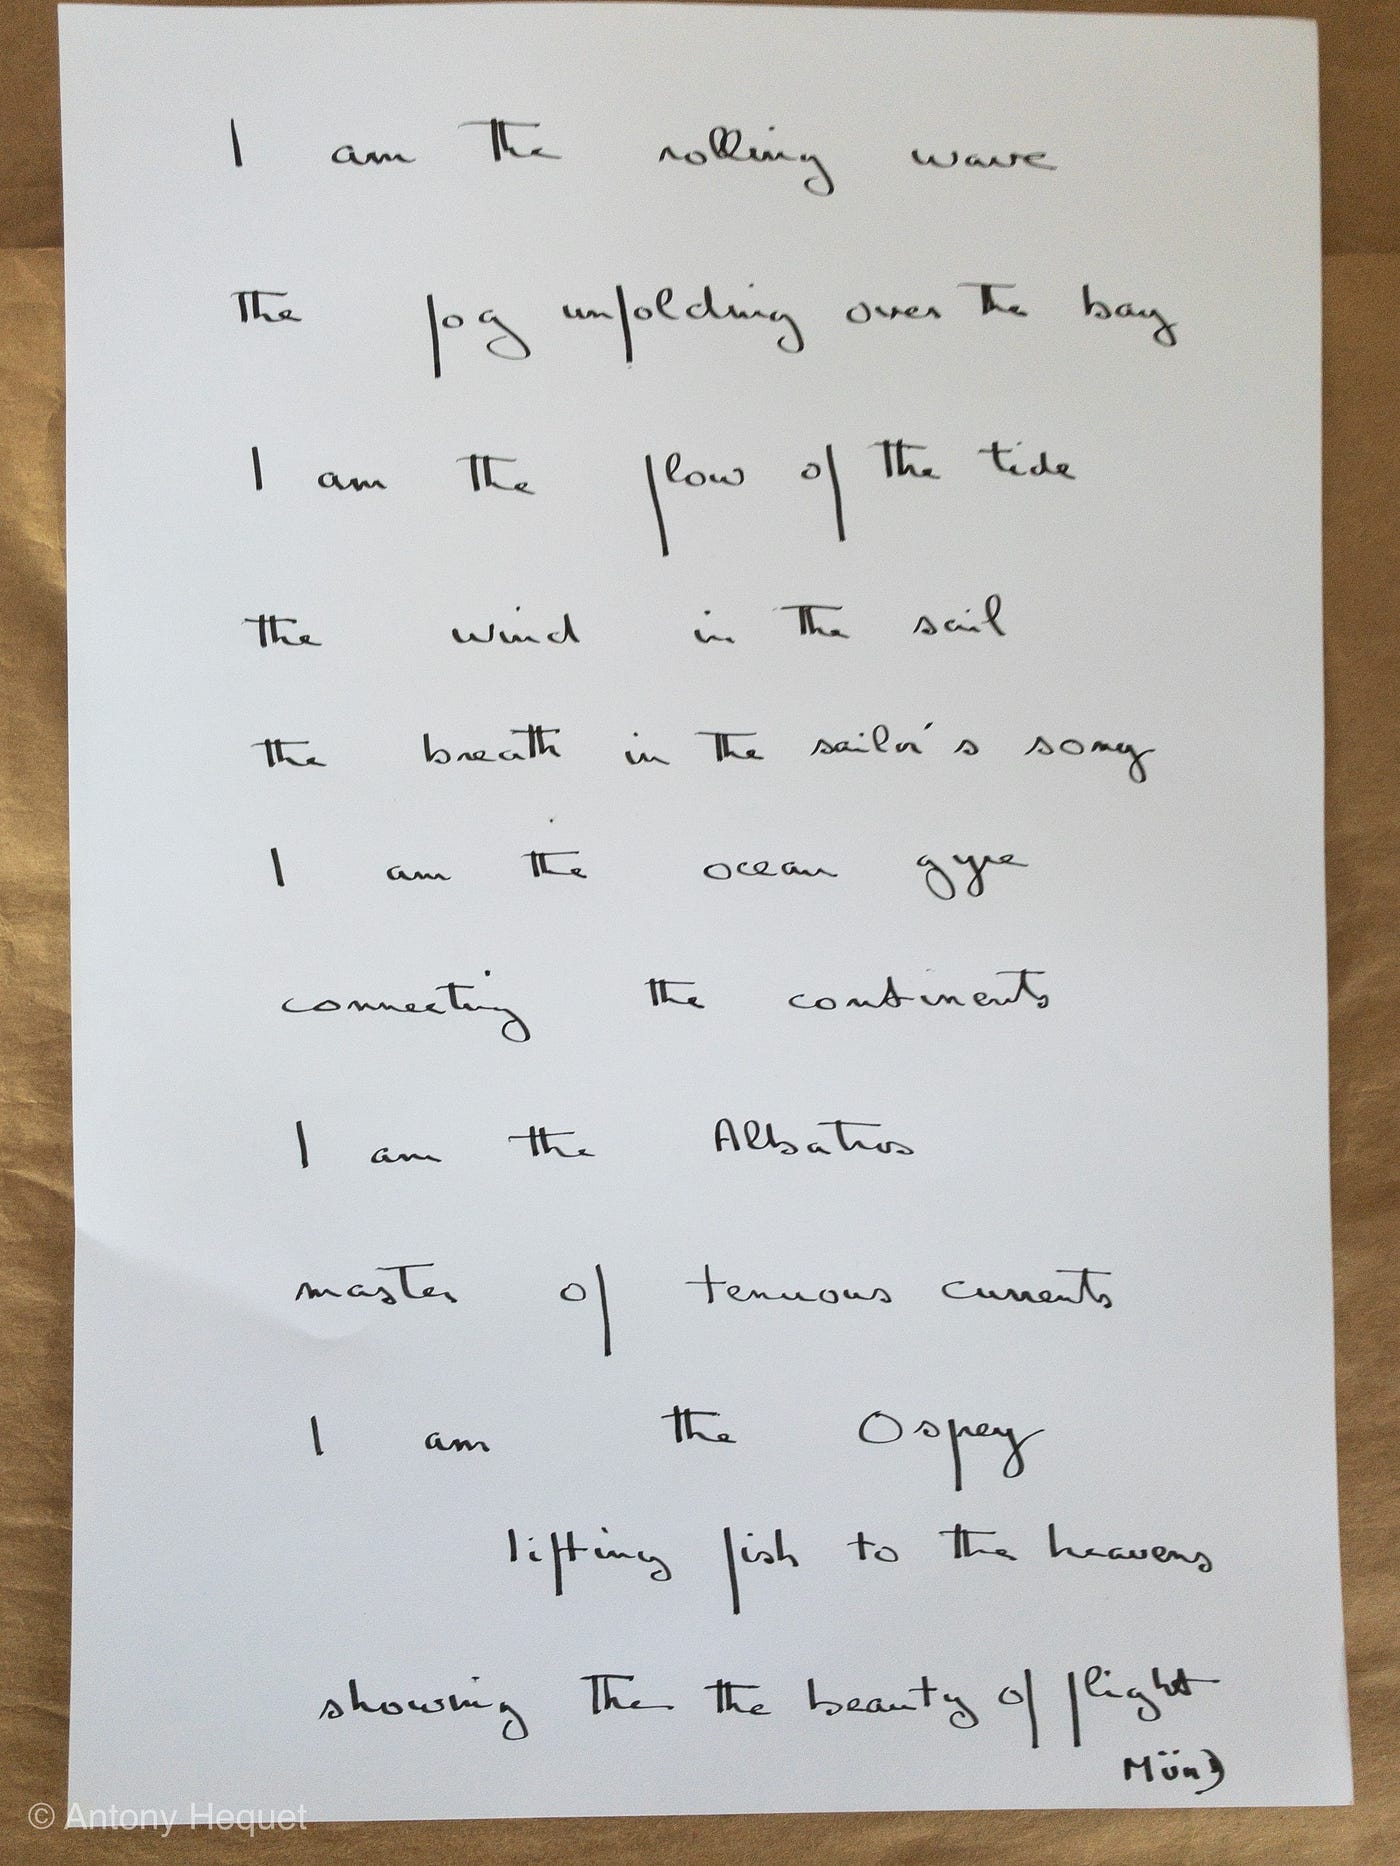 I am the rolling wave
the fog unfolding over the bay
I am the flow of the tide
the wind in the sail
the breath in the sailor's song
I am the ocean gyre
connecting the continents
I am the Albatros
master of tenuous currents
I am the Osprey
lifting fish to the heavens
showing the the beauty of flight
© Antony Hequet